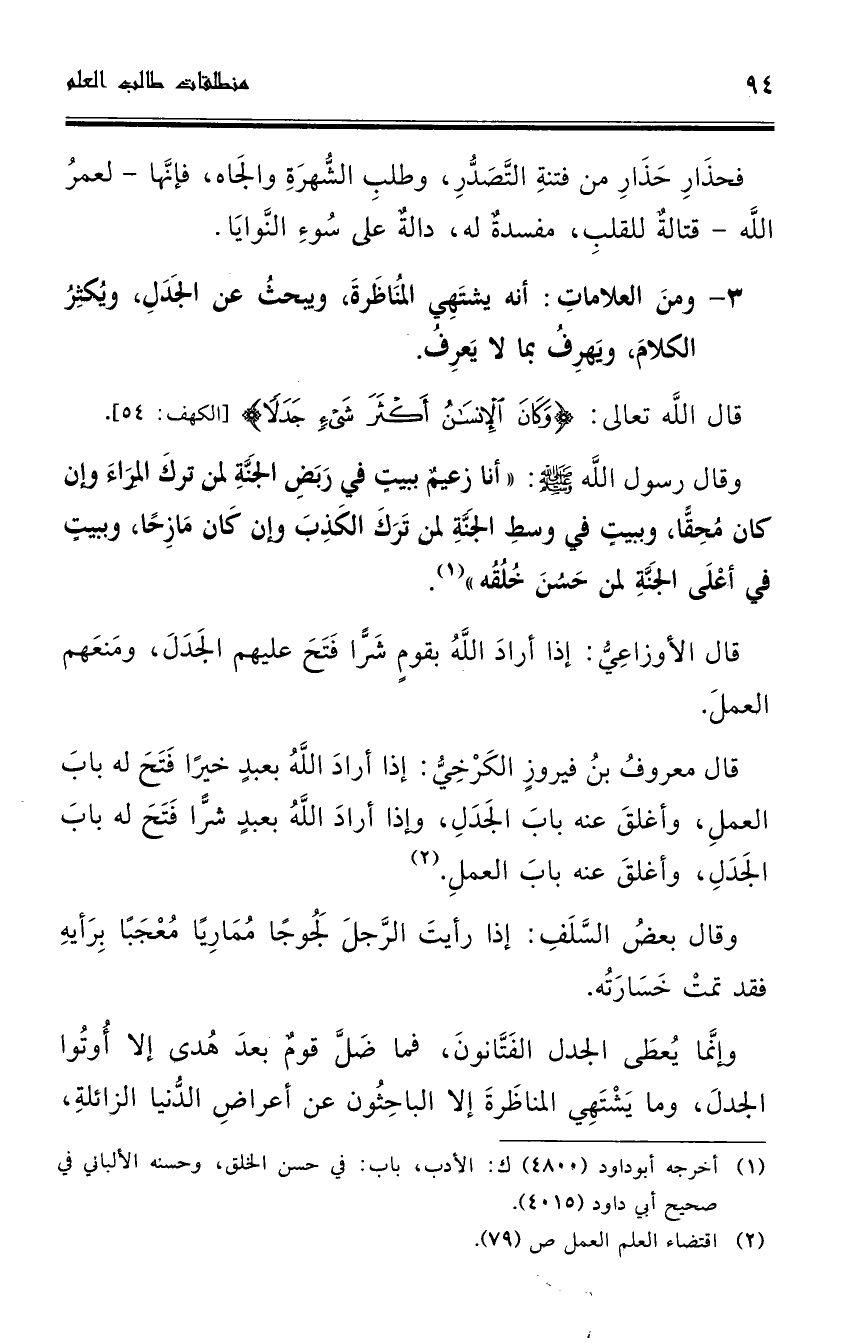 ٩٤ منطلقات طالب العلم
فحذَارِ حَذَارِ من فتنةِ التَّصَدُّرِ، وطلبِ الشُّهرَةِ والجَاه، فإنَّها - لعمرُ
اللَّه - قتالةٌ للقلبِ، مفسدةٌ له، دالةٌ على سُوءِ النَّوايَا.
٣- ومنَ العلاماتِ: أنه يشتَهِي المُنَاظَرةَ، ويبحثُ عن الجَدَلِ، ويُكثِرُ
الكلامَ، ويَهرِفُ بما لا يَعرِفُ.
قال اللَّه تعالى: ﴿وَكَانَ ٱلْإِنسَـٰنُ أَكْثَرَ شَىْءٍ جَدَلًا﴾ [الكهف: ٥٤].
وقال رسول اللَّه ﷺ: «أنا زعيمٌ ببيتٍ في رَبَضِ الجنَّةِ لمن تركَ المِرَاءَ وإن
كان مُحِقًّا، وببيتٍ في وسطِ الجنَّةِ لمن تَرَكَ الكَذِبَ وإن كَان مَازِحًا، وببيتٍ
في أعْلَى الجنَّةِ لمن حَسُنَ خُلُقُه»(١).
قال الأوزاعِيُّ: إذا أرادَ اللَّهُ بقومٍ شَرًّا فَتَحَ عليهم الجَدَلَ، ومَنعَهم
العملَ.
قال معروفُ بنُ فيروزٍ الكَرْخِيُّ: إذا أرادَ اللَّهُ بعبدٍ خيرًا فَتَحَ له بابَ
العملِ، وأغلقَ عنه بابَ الجَدَلِ، وإذا أرادَ اللَّهُ بعبدٍ شرًّا فَتَحَ له بابَ
الجَدَلِ، وأغلقَ عنه بابَ العملِ.(٢)
وقال بعضُ السَّلَفِ: إذا رأيتَ الرَّجلَ لَجُوجًا مُمَارِيًا مُعْجَبًا بِرَأيهِ
فقد تمتْ خَسَارَتُه.
وإنَّما يُعطَى الجدل الفَتَّانونَ، فما ضَلَّ قومٌ بعدَ هُدى إلا أُوتُوا
الجدلَ، وما يَشْتَهِي المناظَرةَ إلا الباحِثُون عن أعراضِ الدُّنيا الزائلةِ،
(١) أخرجه أبوداود (٤٨٠٠) ك: الأدب، باب: في حسن الخلق، وحسنه الألباني في
صحيح أبي داود (٤٠١٥).
(٢) اقتضاء العلم العمل ص (٧٩).